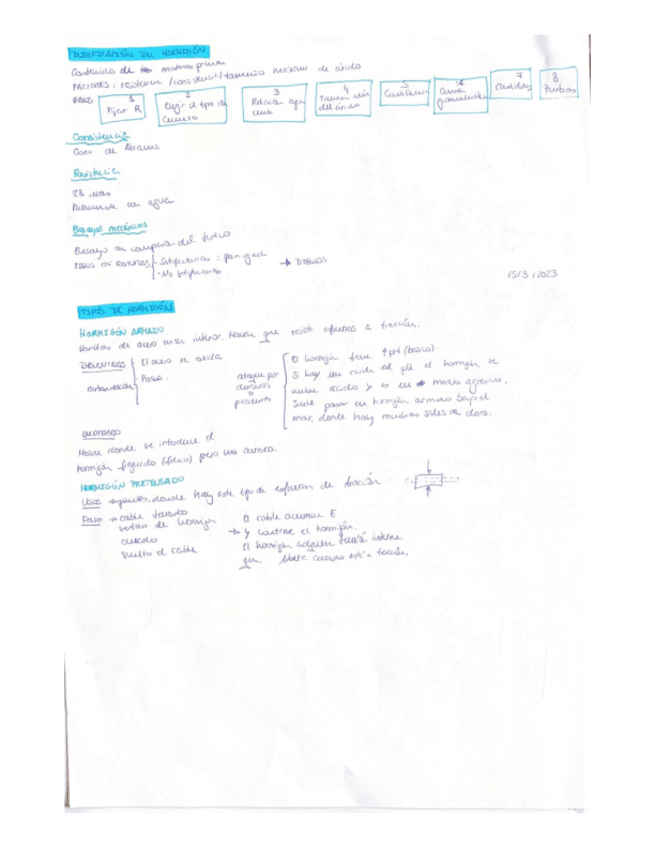 DOSIFICACIÓN DEL HORMIGÓN
Contenido de las materias primas
FACTORES: resistencia / consistencia / tamaño máximo de árido
1 Fijar R
2 Elegir el tipo de cemento
3 Relación agua cemento
4 Tamaño máx del árido
5 Consistencia
6 Curva granulométrica
7 Cantidades
8 Pruebas
Consistencia
Cono de Abrams
Resistencia
28 días
con agua
Ensayos mecánicos
Ensayo de compresión
TIPOS DE ROTURAS
- Satisfactorias: por igual
- No satisfactorias
15/3/2023
TIPOS DE HORMIGÓN
HORMIGÓN ARMADO
Varillas de acero en su interior. Hacen que resista esfuerzos a tracción.
El acero se oxida
Paso:
ataque por cloruros o
El hormigón tiene ↑pH (básico).
Si hay una caída del pH el hormigón se
vuelve ácido y es un medio agresivo.
Suele pasar en hormigón armado bajo el
mar, donde hay muchas sales de cloro.
ENCOFRADO
Molde donde se introduce el
hormigón líquido (fresco) pero no
HORMIGÓN PRETENSADO
Usos → puentes, donde hay este tipo de esfuerzos de tracción:
Pasos → cable tensado
vertido de hormigón
curado
suelto el cable
El cable acumula E
→ y contrae el hormigón.
El hormigón adquiere tensión interna
que libera cuando está a tracción.